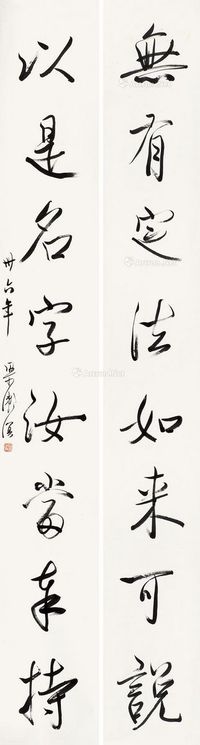 無有定法如來可說
以是名字汝當奉持
卅六年